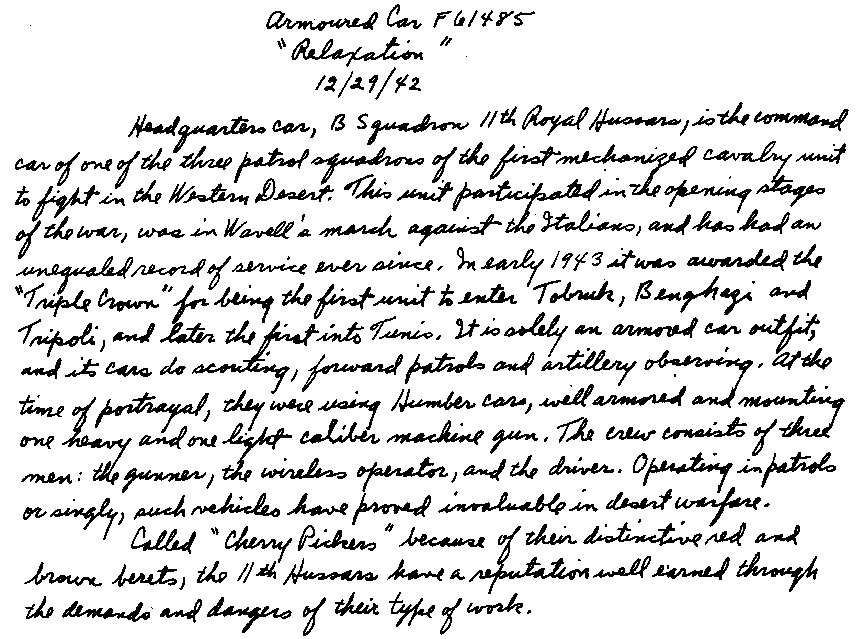 Armoured Car F61485
"Relaxation"
12/29/42
Headquarters car, B Squadron 11th Royal Hussars, is the command
car of one of the three patrol squadrons of the first mechanized cavalry unit
to fight in the Western Desert. This unit participated in the opening stages
of the war, was in Wavell's march against the Italians, and has had an
unequaled record of service ever since. In early 1943 it was awarded the
"Triple Crown" for being the first unit to enter Tobruk, Benghazi and
Tripoli, and later the first into Tunis. It is solely an armored car outfit,
and its cars do scouting, forward patrols and artillery observing. At the
time of portrayal, they were using Humber cars, well armored and mounting
one heavy and one light caliber machine gun. The crew consists of three
men: the gunner, the wireless operator, and the driver. Operating in patrols
or singly, such vehicles have proved invaluable in desert warfare.
Called "Cherry Pickers" because of their distinctive red and
brown berets, the 11th Hussars have a reputation well earned through
the demands and dangers of their type of work.